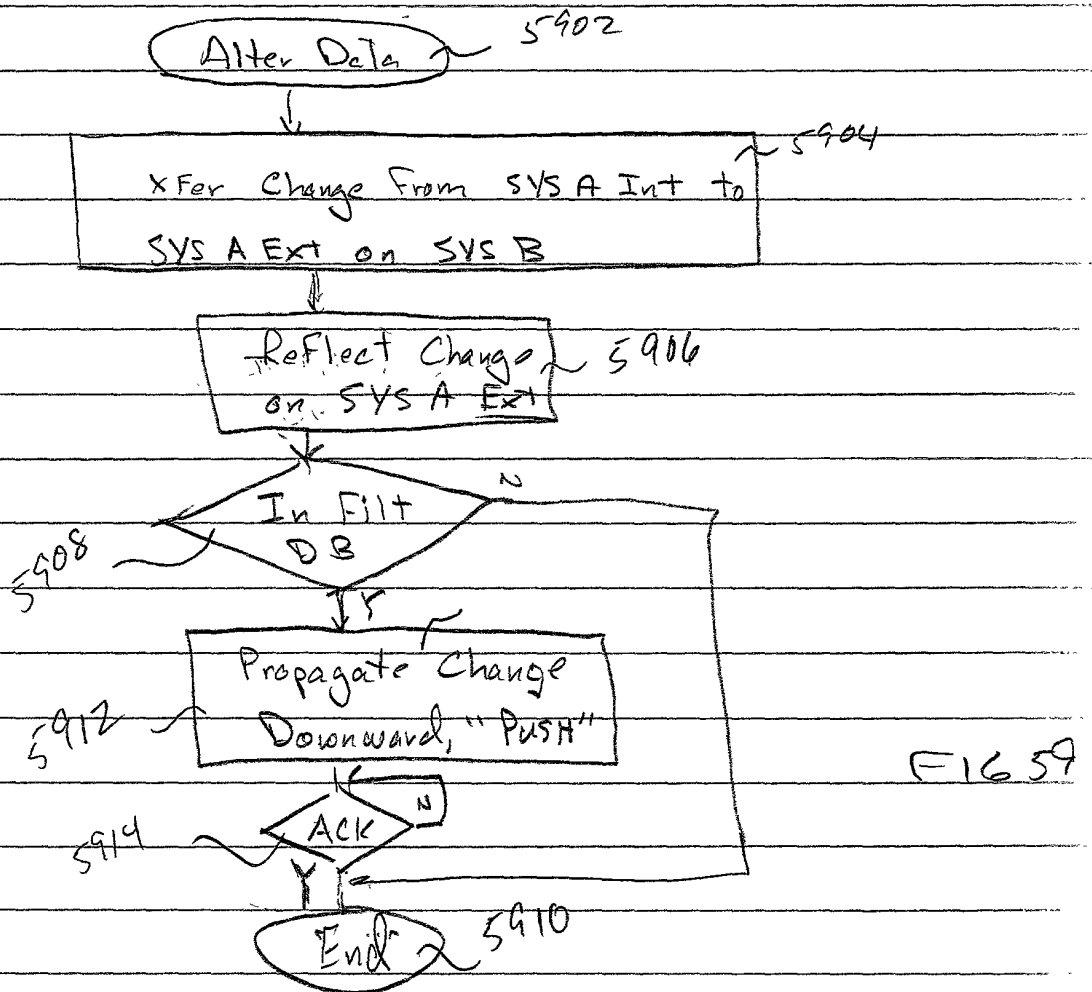 Alter Data
5902
xFer Change From SYS A Int to
SYS A Ext on SYS B
5904
Reflect Change
on SYS A Ext
5906
In Filt
DB
N
5908
Y
Propagate Change
Downward, "PUSH"
5912
ACK
N
5914
Y
End
5910
FIG 59